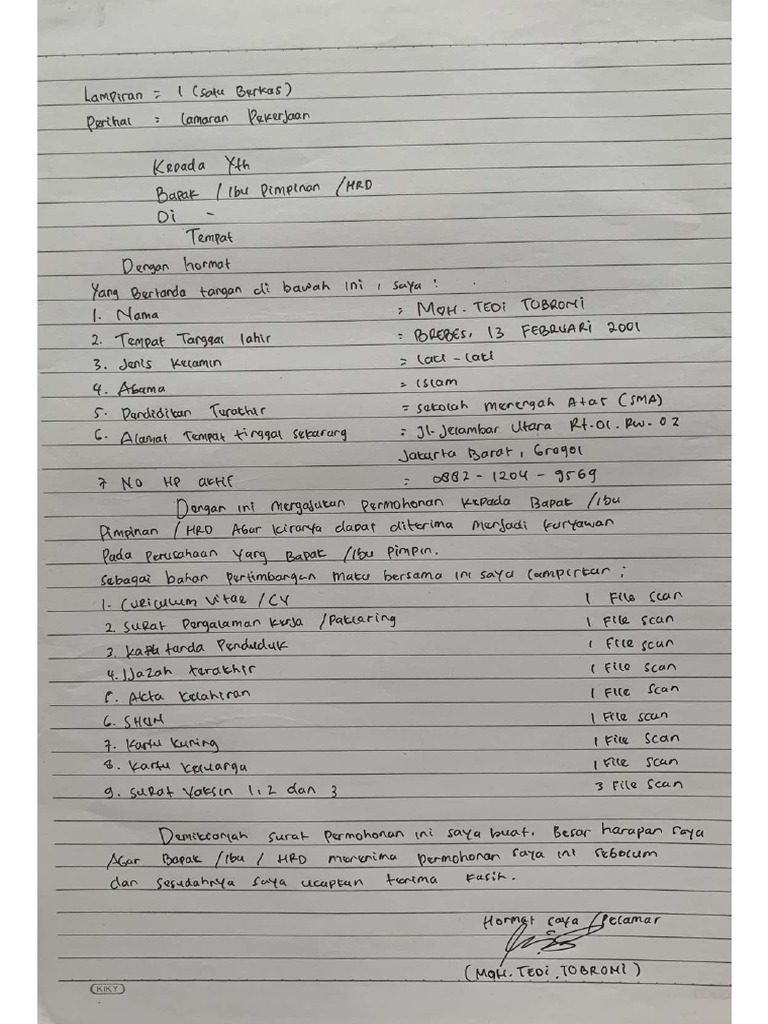 Lampiran = 1 (satu Berkas)
Perihal : Lamaran Pekerjaan
Kepada Yth
Bapak / Ibu Pimpinan / HRD
Di -
Tempat
Dengan hormat
Yang Bertanda tangan di bawah ini, saya :
1. Nama = MOH. TEDI TOBRONI
2. Tempat Tanggal lahir = BREBES, 13 FEBRUARI 2001
3. Jenis Kelamin = Laki - Laki
4. Agama = Islam
5. Pendidikan Terakhir = sekolah menengah Atas (SMA)
6. Alamat Tempat tinggal sekarang = Jl. Jelambar Utara Rt.01. Rw. 02
Jakarta Barat, Grogol
7 No HP aktif : 0882 - 1204 - 9569
Dengan ini mengajukan Permohonan Kepada Bapak / Ibu
Pimpinan / HRD Agar kiranya dapat diterima menjadi karyawan
Pada Perusahaan yang Bapak / Ibu Pimpin.
sebagai bahan pertimbangan maka bersama ini saya lampirkan ;
1. Curiculum Vitae / CV 1 File scan
2. Surat Pengalaman Kerja / Paklaring 1 File scan
3. Kartu tanda Penduduk 1 File scan
4. Ijazah terakhir 1 File scan
5. Akta Kelahiran 1 File scan
6. SHUN 1 File scan
7. Kartu Kuning 1 File scan
8. Kartu Keluarga 1 File scan
9. Surat Vaksin 1, 2 dan 3 3 File scan
Demikianlah surat Permohonan ini saya buat. Besar harapan saya
Agar Bapak / Ibu / HRD menerima permohonan saya ini sebelum
dan sesudahnya saya ucapkan terima kasih.
Hormat saya / Pelamar
(MOH. TEDI TOBRONI)
KIKY